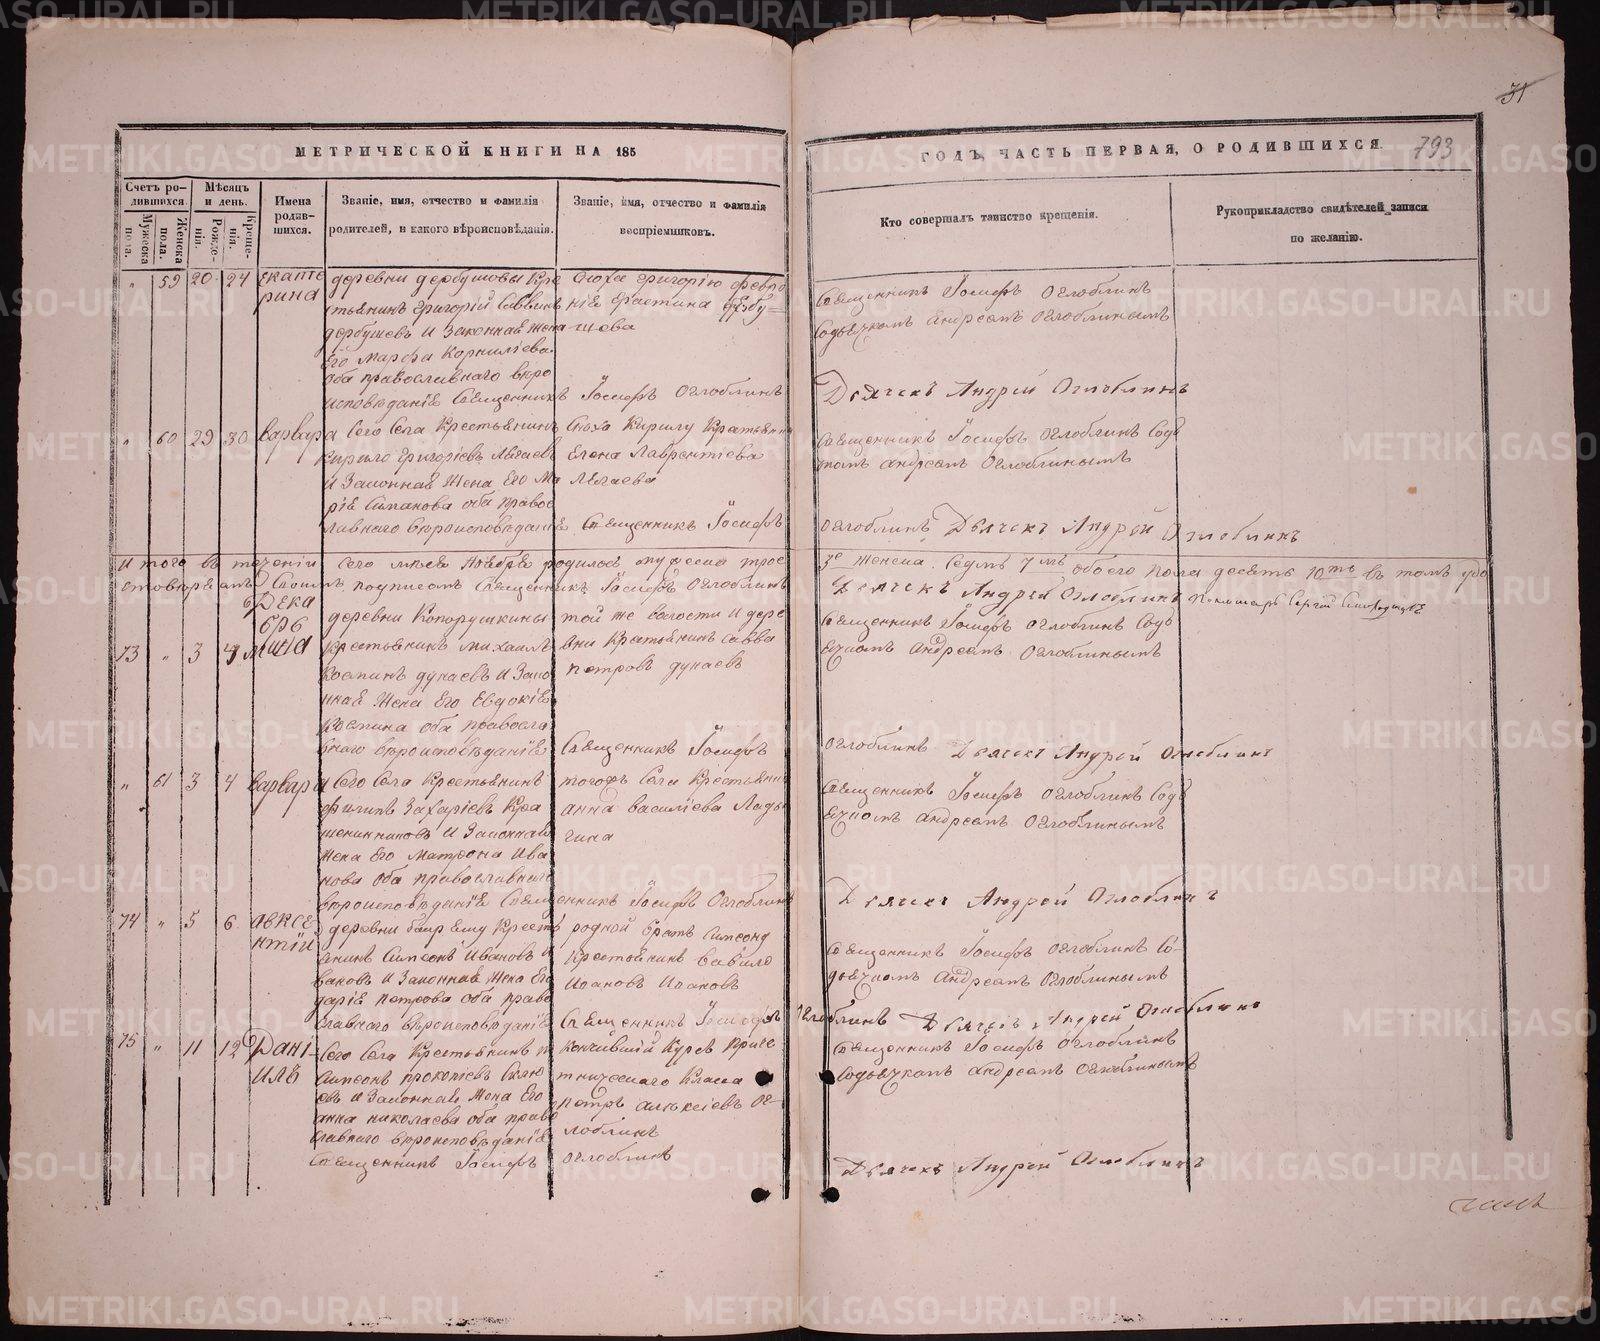 31
793
МЕТРИЧЕСКОЙ КНИГИ НА 185
ГОДЪ, ЧАСТЬ ПЕРВАЯ, О РОДИВШИХСЯ.
Счетъ ро-
дившихся.
Мужеска
пола.
Женска
пола.
Мѣсяцъ
и день.
Рожде-
нія.
Креще-
нія.
Имена
родив-
шихся.
Званіе, имя, отчество и фамилія
родителей, и какого вѣроисповѣданія.
Званіе, имя, отчество и фамилія
воспріемниковъ.
Кто совершалъ таинство крещенія.
Рукоприкладство свидѣтелей записи
по желанію.
" 59 20 24 Екате
рина
деревни дербушовы Кре
стьянинъ Григорій Саввинъ
дербушевъ И Законная жена
Его Марфа Корниліева
оба православнаго вѣро
исповѣданіе Священникъ
Сноха Григорію Февро
ніе
шева
Іосифъ Оглоблинъ
Священникъ Іосифъ Оглоблинъ
Содьячкомъ Андреемъ Оглоблинымъ
Дьячекъ Андрей Оглоблинъ
" 60 29 30 Варвара
Сего Села Крестьянинъ
Кирило Григоріевъ
И Законная Жена Его Ма
рія оба право
славнаго вѣроисповѣданіе
Сноха Кирилу Крестьянин
Елена Лаврентіева
Священникъ Іосифъ
Священникъ Іосифъ Оглоблинъ Содь
Андреемъ Оглоблинымъ
Оглоблинъ Дьячекъ Андрей Оглоблинъ
И того въ теченіи Сего Ноября родилось мужеска трое
3е женска Седмь 7мь обоего пола десять 10ть въ томъ
подписомъ Священникъ Іосифъ Оглоблинъ
Дьячекъ Андрей Оглоблинъ Сергій
Дека
брь
73 " 3 4 Мина
деревни Копорушкины
Крестьянинъ Михаилъ
Козминъ дунаевъ И Зако
нная Жена Его Евдокіе
Козмина оба правосла
внаго вѣроисповѣданіе
той же волости И дере
вни Крестьянинъ Савва
Петровъ дунаевъ
Священникъ Іосифъ
Священникъ Іосифъ Оглоблинъ Содь
ячкомъ Андреемъ Оглоблинымъ
Оглоблинъ Дьячекъ Андрей Оглоблинъ
" 61 3 4 Варвара
Сего Села Крестьянинъ
Филипъ Захаріевъ Кра
шенинниковъ И Законная
Жена Его Матрона Ива
нова оба православнаго
вѣроисповѣданіе Священникъ Іосифъ Оглоблинъ
тогожъ Села Крестьянин
Анна Василіева Лады
гина
Священникъ Іосифъ Оглоблинъ Содь
ячкомъ Андреемъ Оглоблинымъ
Дьячекъ Андрей Оглоблинъ
74 " 5 6 Авксе
нтій
деревни Крест
янинъ Симеонъ Ивановъ И
вановъ И Законная Жена Его
даріе Петрова оба право
славнаго вѣроисповѣданіе
родной братъ Симеону
Крестьянинъ Вавило
Ивановъ Ивановъ
Священникъ Іосифъ
Священникъ Іосифъ Оглоблинъ Со-
дьячкомъ Андреемъ Оглоблинымъ
Оглоблинъ Дьячекъ Андрей Оглоблинъ
75 " 11 12 Дані-
илъ
Сего Села Крестьянинъ
Симеонъ Прокопіевъ
И Законная Жена Его
Анна Николаева оба право
славнаго вѣроисповѣданіе
Священникъ Іосифъ Оглоблинъ
Кончившій Курсъ
Класса
Петръ Алексіевъ Ог-
лоблинъ
Священникъ Іосифъ Оглоблинъ
Содьячкомъ Андреемъ Оглоблинымъ
Дьячекъ Андрей Оглоблинъ
METRIKI.GASO-URAL.RU